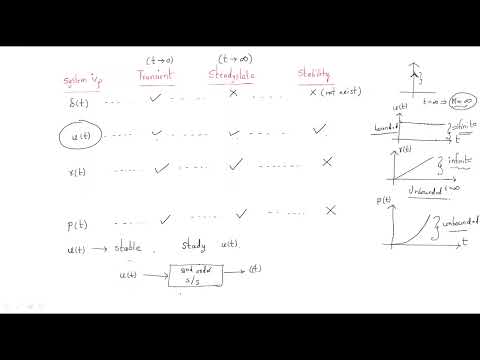 (t→0) (t→∞)
System i/p Transient Steadystate Stability
δ(t) ---- ✓ ---- × ---- × (not exist)
u(t) ---- ✓ ---- ✓ ---- ✓
r(t) ---- ✓ ---- ✓ ---- ×
p(t) ---- ✓ ---- ✓ ---- ×
u(t) → stable. study u(t).
u(t) → 2nd order s/s → c(t)
t=∞ ⇒ M=∞
u(t)
bounded
finite
t
r(t)
infinite
Unbounded
p(t)
unbounded
t